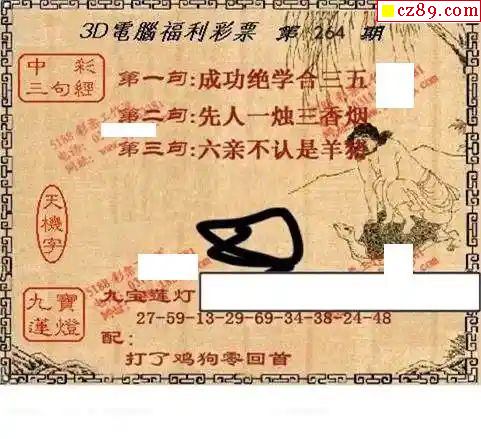 cz89.com
3D電腦福利彩票 第 264 期
中彩三句經
第一句:成功绝学合三五
第二句:先人一烛三香烟
第三句:六亲不认是羊猪
天機字
九寶蓮燈
九宝莲灯
27-59-13-29-69-34-38-24-48
配:
打了鸡狗零回首